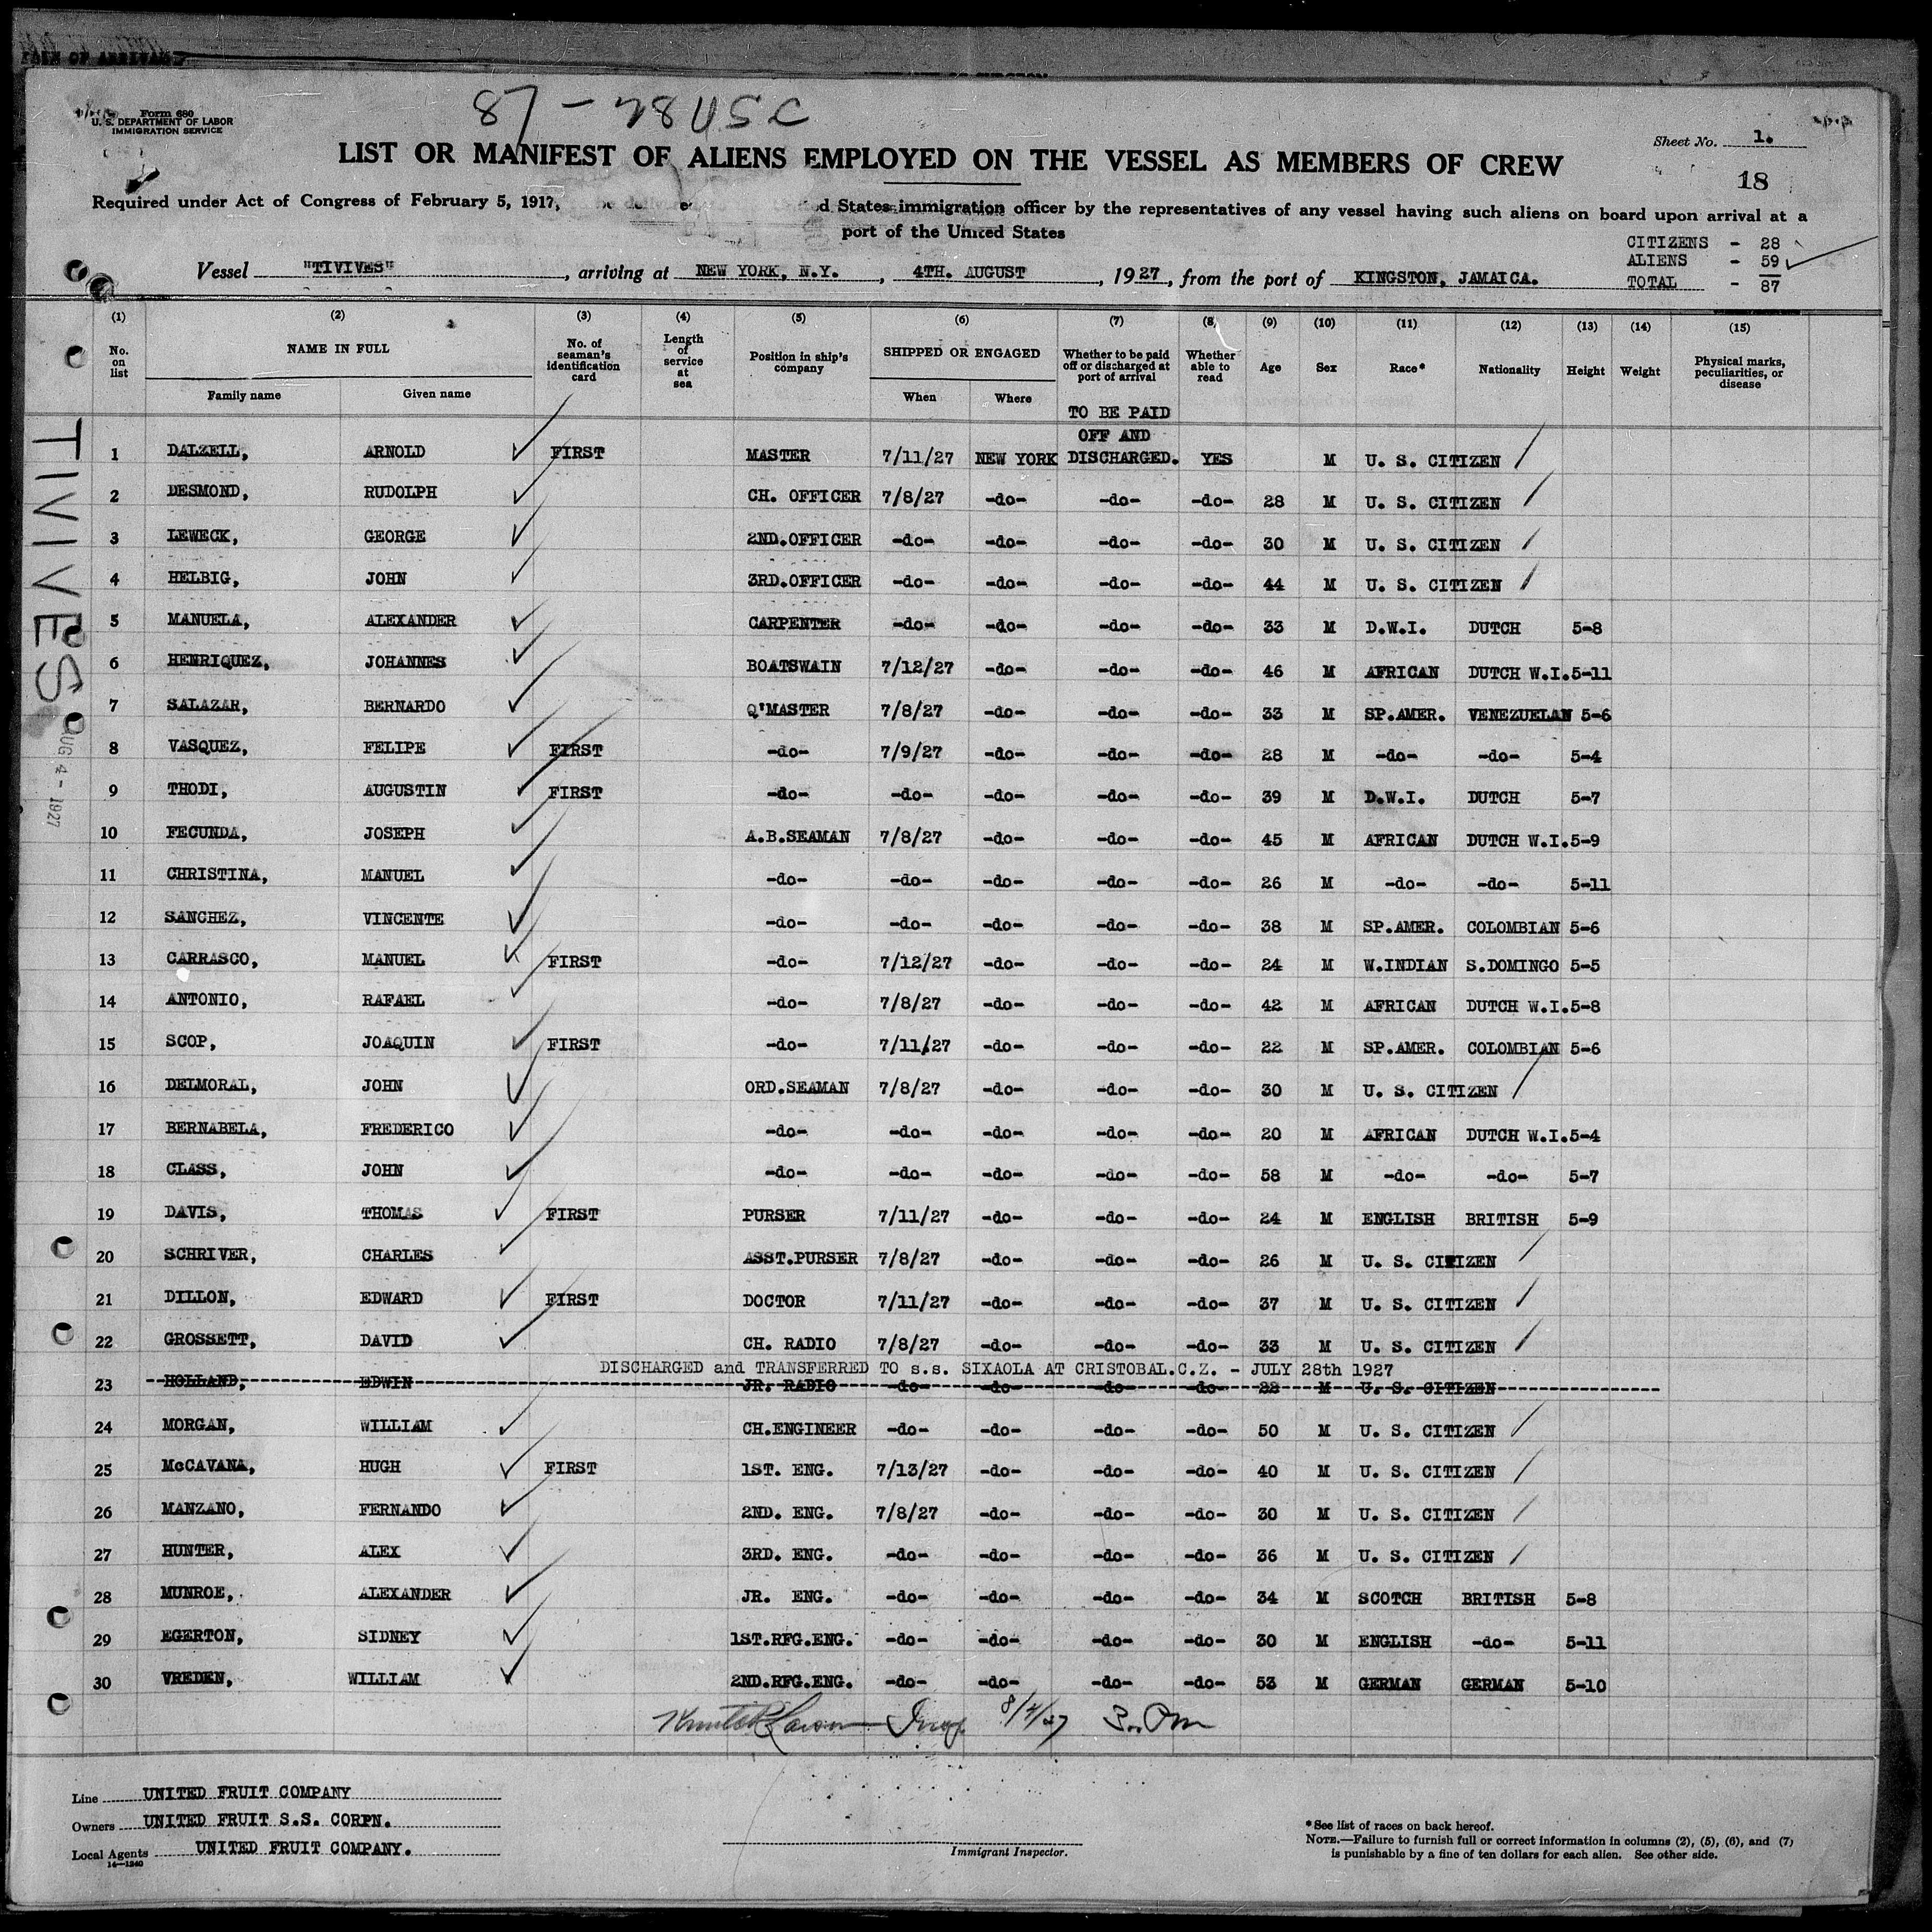 Form 680
U. S. DEPARTMENT OF LABOR
IMMIGRATION SERVICE
87 - 28 USC
Sheet No. 1.
LIST OR MANIFEST OF ALIENS EMPLOYED ON THE VESSEL AS MEMBERS OF CREW
18
Required under Act of Congress of February 5, 1917, d States immigration officer by the representatives of any vessel having such aliens on board upon arrival at a
port of the United States
CITIZENS - 28
ALIENS - 59
TOTAL - 87
Vessel "TIVIVES", arriving at NEW YORK, N.Y., 4TH. AUGUST, 1927, from the port of KINGSTON, JAMAICA.
(1) (2) (3) (4) (5) (6) (7) (8) (9) (10) (11) (12) (13) (14) (15)
No. on list NAME IN FULL Family name Given name No. of seaman's identification card Length of service at sea Position in ship's company SHIPPED OR ENGAGED When Where Whether to be paid off or discharged at port of arrival Whether able to read Age Sex Race* Nationality Height Weight Physical marks, peculiarities, or disease
TO BE PAID
OFF AND
1 DALZELL, ARNOLD FIRST MASTER 7/11/27 NEW YORK DISCHARGED. YES M U. S. CITIZEN
2 DESMOND, RUDOLPH CH. OFFICER 7/8/27 -do- -do- -do- 28 M U. S. CITIZEN
3 LEWECK, GEORGE 2ND.OFFICER -do- -do- -do- -do- 30 M U. S. CITIZEN
4 HELBIG, JOHN 3RD.OFFICER -do- -do- -do- -do- 44 M U. S. CITIZEN
5 MANUELA, ALEXANDER CARPENTER -do- -do- -do- -do- 33 M D.W.I. DUTCH 5-8
6 HENRIQUEZ, JOHANNES BOATSWAIN 7/12/27 -do- -do- -do- 46 M AFRICAN DUTCH W.I. 5-11
7 SALAZAR, BERNARDO Q'MASTER 7/8/27 -do- -do- -do- 33 M SP.AMER. VENEZUELAN 5-6
8 VASQUEZ, FELIPE FIRST -do- 7/9/27 -do- -do- -do- 28 M -do- -do- 5-4
9 THODI, AUGUSTIN FIRST -do- -do- -do- -do- -do- 39 M D.W.I. DUTCH 5-7
10 FECUNDA, JOSEPH A.B.SEAMAN 7/8/27 -do- -do- -do- 45 M AFRICAN DUTCH W.I. 5-9
11 CHRISTINA, MANUEL -do- -do- -do- -do- -do- 26 M -do- -do- 5-11
12 SANCHEZ, VINCENTE -do- -do- -do- -do- -do- 38 M SP.AMER. COLOMBIAN 5-6
13 CARRASCO, MANUEL FIRST -do- 7/12/27 -do- -do- -do- 24 M W.INDIAN S.DOMINGO 5-5
14 ANTONIO, RAFAEL -do- 7/8/27 -do- -do- -do- 42 M AFRICAN DUTCH W.I. 5-8
15 SCOP, JOAQUIN FIRST -do- 7/11/27 -do- -do- -do- 22 M SP.AMER. COLOMBIAN 5-6
16 DELMORAL, JOHN ORD.SEAMAN 7/8/27 -do- -do- -do- 30 M U. S. CITIZEN
17 BERNABELA, FREDERICO -do- -do- -do- -do- -do- 20 M AFRICAN DUTCH W.I. 5-4
18 CLASS, JOHN -do- -do- -do- -do- -do- 58 M -do- -do- 5-7
19 DAVIS, THOMAS FIRST PURSER 7/11/27 -do- -do- -do- 24 M ENGLISH BRITISH 5-9
20 SCHRIVER, CHARLES ASST.PURSER 7/8/27 -do- -do- -do- 26 M U. S. CITIZEN
21 DILLON, EDWARD FIRST DOCTOR 7/11/27 -do- -do- -do- 37 M U. S. CITIZEN
22 GROSSETT, DAVID CH. RADIO 7/8/27 -do- -do- -do- 33 M U. S. CITIZEN
DISCHARGED and TRANSFERRED TO s.s. SIXAOLA AT CRISTOBAL.C.Z. - JULY 28th 1927
23 HOLLAND, EDWIN JR. RADIO -do- -do- -do- -do- 22 M U. S. CITIZEN
24 MORGAN, WILLIAM CH.ENGINEER -do- -do- -do- -do- 50 M U. S. CITIZEN
25 McCAVANA, HUGH FIRST 1ST. ENG. 7/13/27 -do- -do- -do- 40 M U. S. CITIZEN
26 MANZANO, FERNANDO 2ND. ENG. 7/8/27 -do- -do- -do- 30 M U. S. CITIZEN
27 HUNTER, ALEX 3RD. ENG. -do- -do- -do- -do- 36 M U. S. CITIZEN
28 MUNROE, ALEXANDER JR. ENG. -do- -do- -do- -do- 34 M SCOTCH BRITISH 5-8
29 EGERTON, SIDNEY 1ST.RFG.ENG. -do- -do- -do- -do- 30 M ENGLISH -do- 5-11
30 VREDEN, WILLIAM 2ND.RFG.ENG. -do- -do- -do- -do- 53 M GERMAN GERMAN 5-10
8/4/27 3 PM
TIVIVES
AUG 4 - 1927
Line UNITED FRUIT COMPANY
Owners UNITED FRUIT S.S. CORPN.
Local Agents UNITED FRUIT COMPANY.
14-1240
Immigrant Inspector.
*See list of races on back hereof.
NOTE.—Failure to furnish full or correct information in columns (2), (5), (6), and (7)
is punishable by a fine of ten dollars for each alien. See other side.